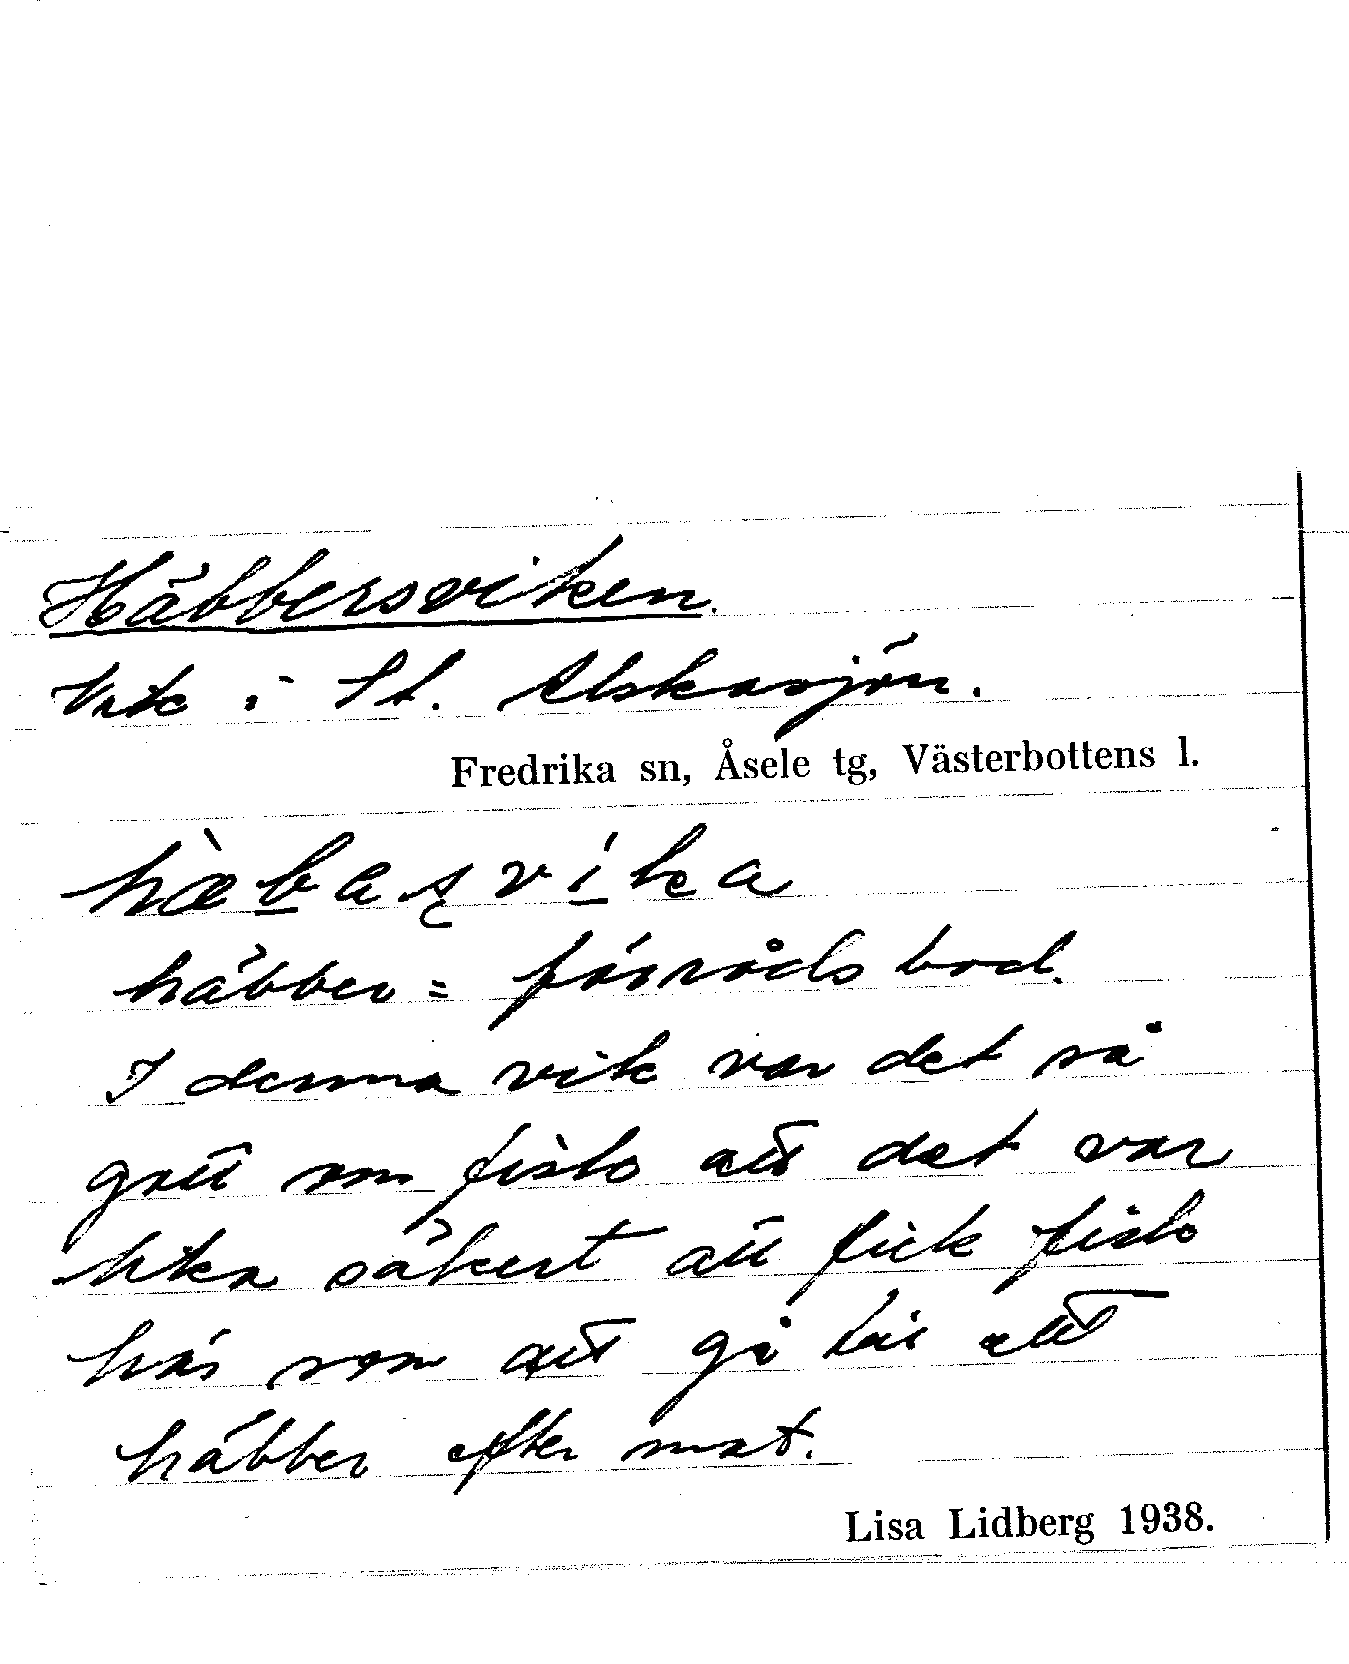 Häbbersviken.
Vik i St. Älskasjön.
Fredrika sn, Åsele tg, Västerbottens l.
hæ̀baʂvíka
häbber = förrådsbod.
I denna vik var det så
gott om fisk att det var
lika säkert att fick fisk
här som att gå till ett
häbber efter mat.
Lisa Lidberg 1938.